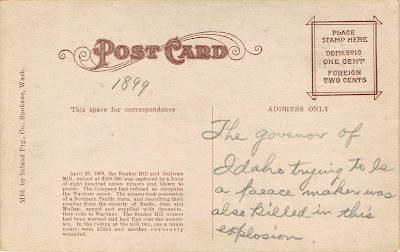 POST CARD
1899
PLACE
STAMP HERE
DOMESTIC
ONE CENT
FOREIGN
TWO CENTS
This space for correspondence
ADDRESS ONLY
Mfd. by Inland Ptg., Co., Spokane, Wash.
April 29, 1899, the Bunker Hill and Sullivan
Mill, valued at $250,000 was captured by a force
of eight hundred union miners and blown to
pieces. The Company had refused to recognize
the Wardner union. The miners took possession
of a Northern Pacific train, and recruiting their
number from the vicinity of Burke, Gem and
Mullan, armed and supplied with dynamite,
they rode to Wardner. The Bunker Hill miners
had been warned and had fled over the mount-
ain. In the rioting at the mill two, one a union
miner, were killed and another seriously
wounded.
The govenor of
Idaho trying to be
a peace maker was
also killed in this
explosion.